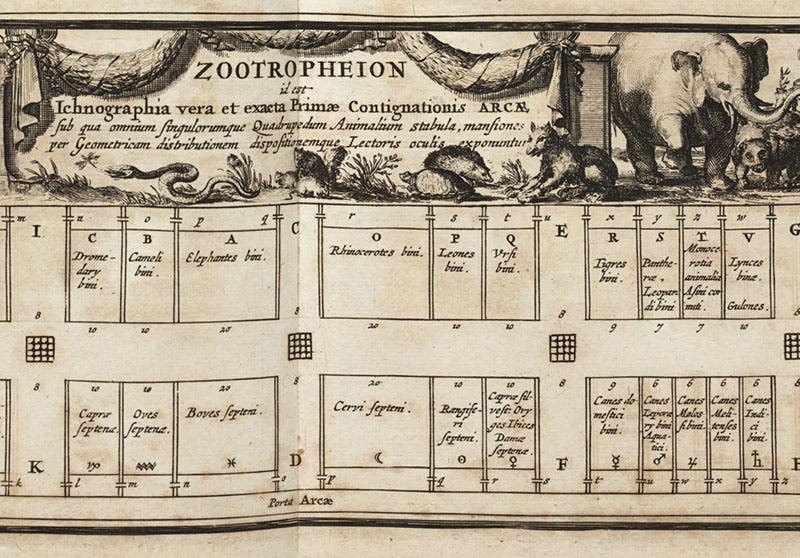 ZOOTROPHEION
id est
Ichnographia vera et exacta Primæ Contignationis ARCÆ,
sub qua omnium singulorumque Quadrupedum Animalium stabula, mansiones
per Geometricam distributionem dispositionemque Lectoris oculis exponuntur
m n o p q r s t u x y z w
I C B A C O P Q E R S T V G
Drome-
dary
bini.
Cameli
bini.
Elephantes bini.
Rhinocerotes bini.
Leones
bini.
Vrsi
bini.
Tigres
bini.
Panthe-
ræ,
Leopar
di bini
Monoce
rotia
animalia
Asini cor
nuti.
Lynces
binæ.
Gulones.
8 8 8
10 10 20 20 10 10 9 7 7 10
8 10 10 20 8 20 10 10 8 9 6 6 6 6
Capræ
septenæ.
Oves
septenæ.
Boves septeni.
Cervi septeni.
Rangife-
ri
septeni.
Capræ sil-
vest: Ory
ges Ibices
Damæ
septenæ.
Canes do-
mestici
bini.
Canes
Leporа
ry bini
Aqua-
tici.
Canes
Molos
si bini.
Canes
Meli-
tenses
bini.
Canes
Indi-
ci
bini.
K ♑ ♒ ♓ D ☾ ☉ ♀ F ☿ ♂ ♃ ♄
k l m n o p q r s t u w x y z
Porta Arcæ